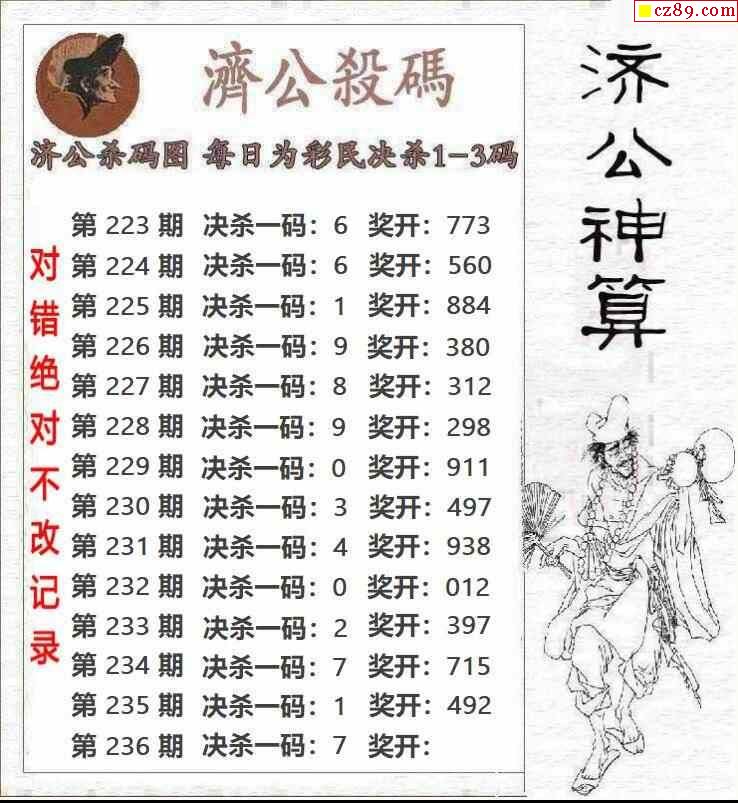 cz89.com
濟公殺碼
济公杀码图 每日为彩民决杀1-3码
第 223 期 决杀一码：6 奖开：773
第 224 期 决杀一码：6 奖开：560
第 225 期 决杀一码：1 奖开：884
第 226 期 决杀一码：9 奖开：380
第 227 期 决杀一码：8 奖开：312
第 228 期 决杀一码：9 奖开：298
第 229 期 决杀一码：0 奖开：911
第 230 期 决杀一码：3 奖开：497
第 231 期 决杀一码：4 奖开：938
第 232 期 决杀一码：0 奖开：012
第 233 期 决杀一码：2 奖开：397
第 234 期 决杀一码：7 奖开：715
第 235 期 决杀一码：1 奖开：492
第 236 期 决杀一码：7 奖开：
对错绝对不改记录
济公神算